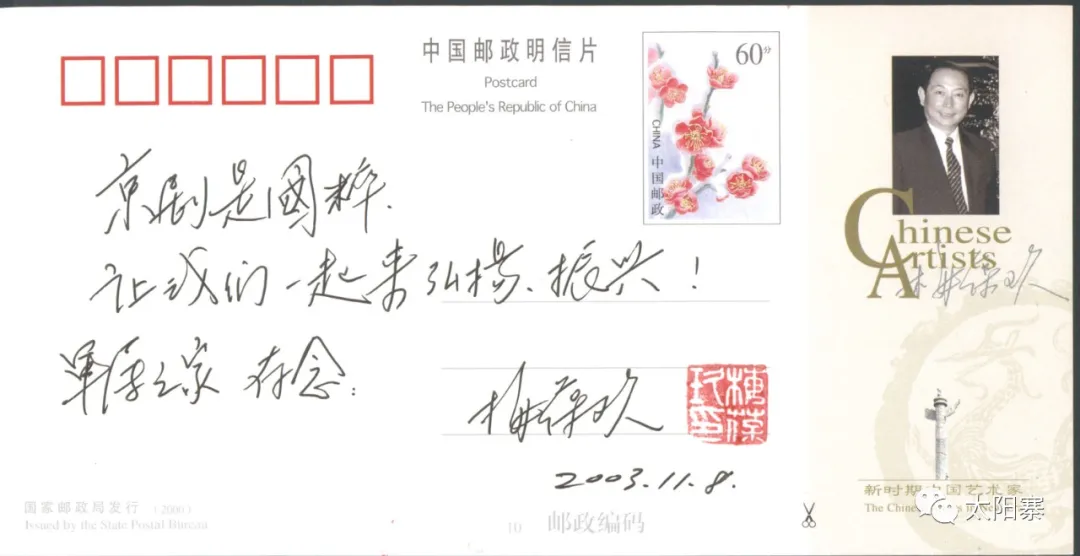 中国邮政明信片
Postcard
The People's Republic of China
60分
CHINA 中国邮政
京剧是國粹.
让我们一起来弘揚、振兴！
之家 存念：
梅葆玖
梅葆玖印
2003.11.8.
国家邮政局发行 (2000)
Issued by the State Postal Bureau
10 邮政编码
Chinese
Artists
梅葆玖
新时期中国艺术家
The Chinese
太阳寨